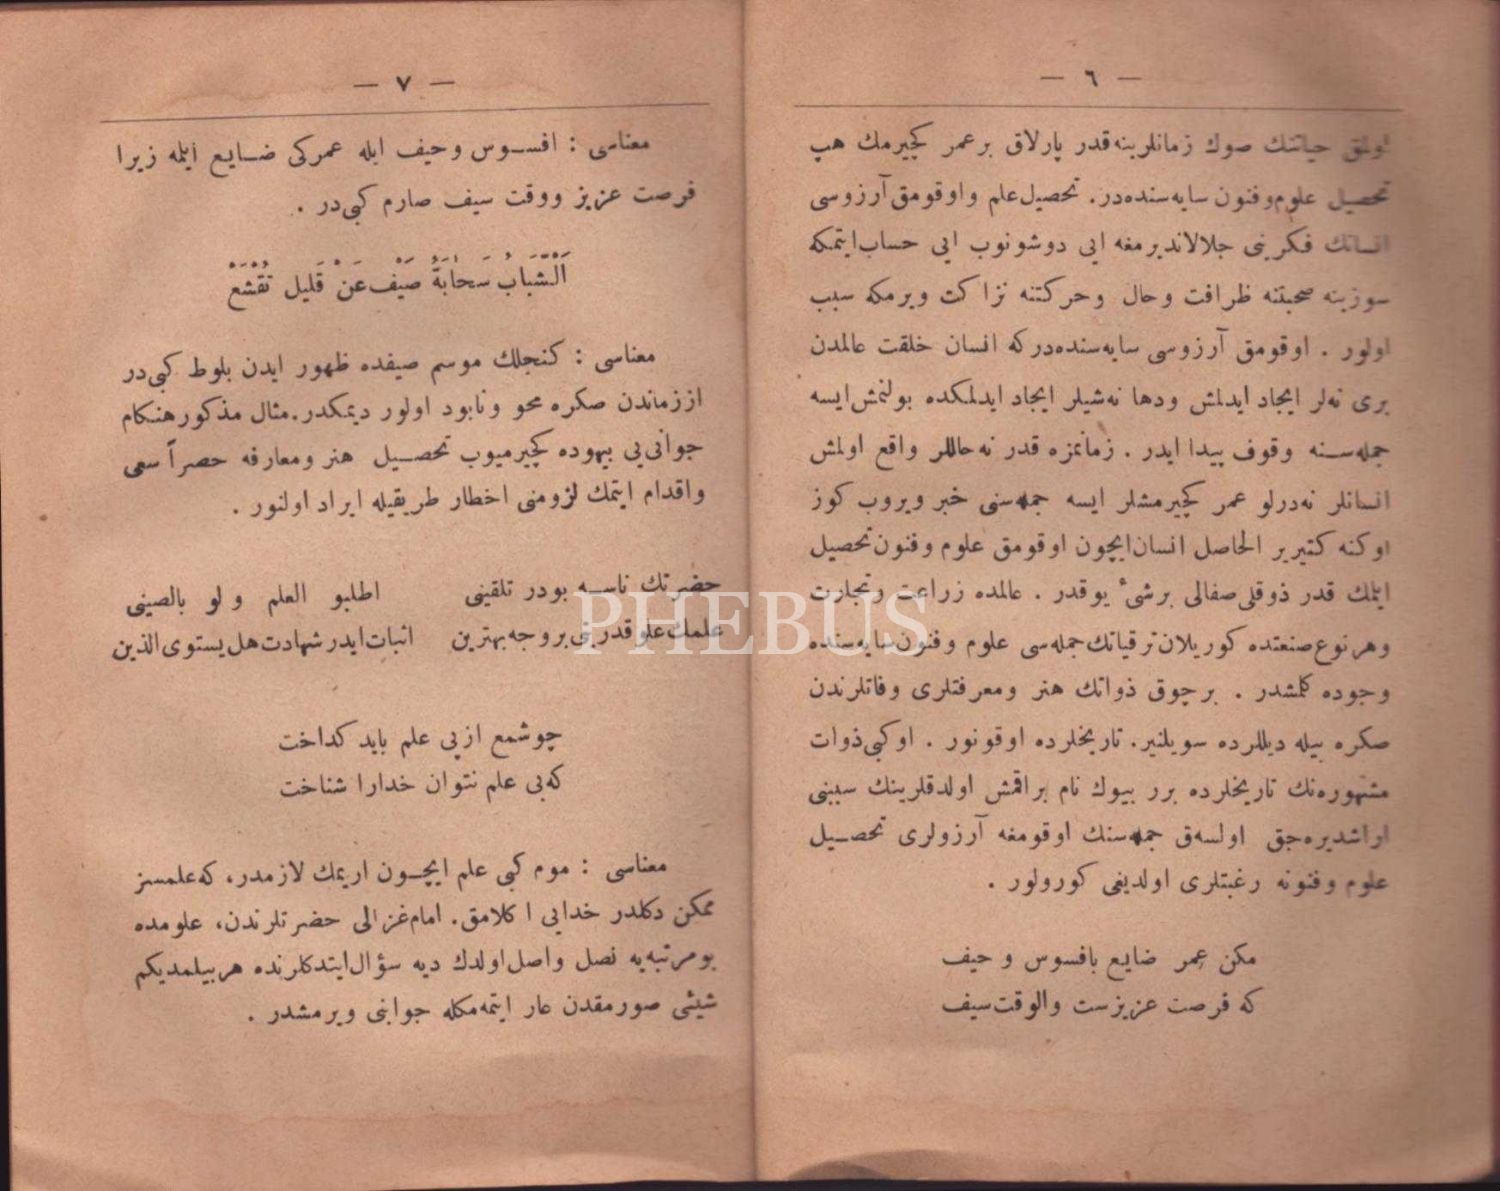 — ٦ —
اولمق حیاتنك صوك زمانلرینه قدر پارلاق بر عمر کچیرمك هپ
تحصیل علوم و فنون سایه سنده در. تحصیل علم و اوقومق آرزوسی
انسانك فکرینی جلالاندیرمغه ایی دوشونوب ایی حساب ایتمکه
سوزینه صحبتنه ظرافت و حال و حرکتنه نزاکت ویرمکه سبب
اولور . اوقومق آرزوسی سایه سنده در که انسان خلقت عالمدن
بری نه لر ایجاد ایدلمش ودها نه شیلر ایجاد ایدلمکده بولنمش ایسه
جمله سنه وقوف پیدا ایدر . زمانمزه قدر نه حاللر واقع اولمش
انسانلر نه درلو عمر کچیرمشلر ایسه جمله سنی خبر ویروب کوز
اوکنه کتیریر الحاصل انسان ایچون اوقومق علوم و فنون تحصیل
ایتمك قدر ذوقلی صفالی برشیٔ یوقدر . عالمده زراعت و تجارت
وهر نوع صنعتده کوریلان ترقیاتك جمله سی علوم و فنون سایه سنده
وجوده کلمشدر . بر چوق ذواتك هنر ومعرفتلری وفاتلرندن
صکره بیله دیللرده سویلنیر. تاریخلرده اوقونور . او کبی ذوات
مشهوره نك تاریخلرده برر بیوك نام براقمش اولدقلرینك سببنی
اراشدیره جق اولسه ق جمله سنك اوقومغه آرزولری تحصیل
علوم و فنونه رغبتلری اولدیغی کورولور .
مکن عمر ضایع بافسوس و حیف
که فرصت عزیزست والوقت سیف
— ٧ —
معناسی : افسوس و حیف ایله عمرکی ضایع ایلمه زیرا
فرصت عزیز ووقت سیف صارم کبی در .
اَلشَّبَابُ سَحَابَةُ صَيْف عَنْ قَليل تَقَشَّعْ
معناسی : کنجلك موسم صیفده ظهور ایدن بلوط کبی در
از زماندن صکره محو و نابود اولور دیمکدر. مثال مذکور هنکام
جوانی یی بیهوده کچیرمیوب تحصیل هنر ومعارفه حصراً سعی
واقدام ایتمك لزومنی اخطار طریقیله ایراد اولنور .
حضرتك ناسه بودر تلقینی اطلبو العلم و لو بالصینی
علمك علو قدرینی بروجه بهترین اثبات ایدر شهادت هل یستوی الذین
چوشمع ازپی علم باید کداخت
که بی علم نتوان خدارا شناخت
معناسی : موم کبی علم ایچون اریمك لازمدر، که علمسز
ممکن دکلدر خدایی اکلامق. امام غزالی حضرتلرندن، علومده
بو مرتبه یه نصل واصل اولدك دیه سؤال ایتدکلرنده هر بیلمدیکم
شیئی صورمقدن عار ایتمه مکله جوابنی ویرمشدر .
PHEBUS